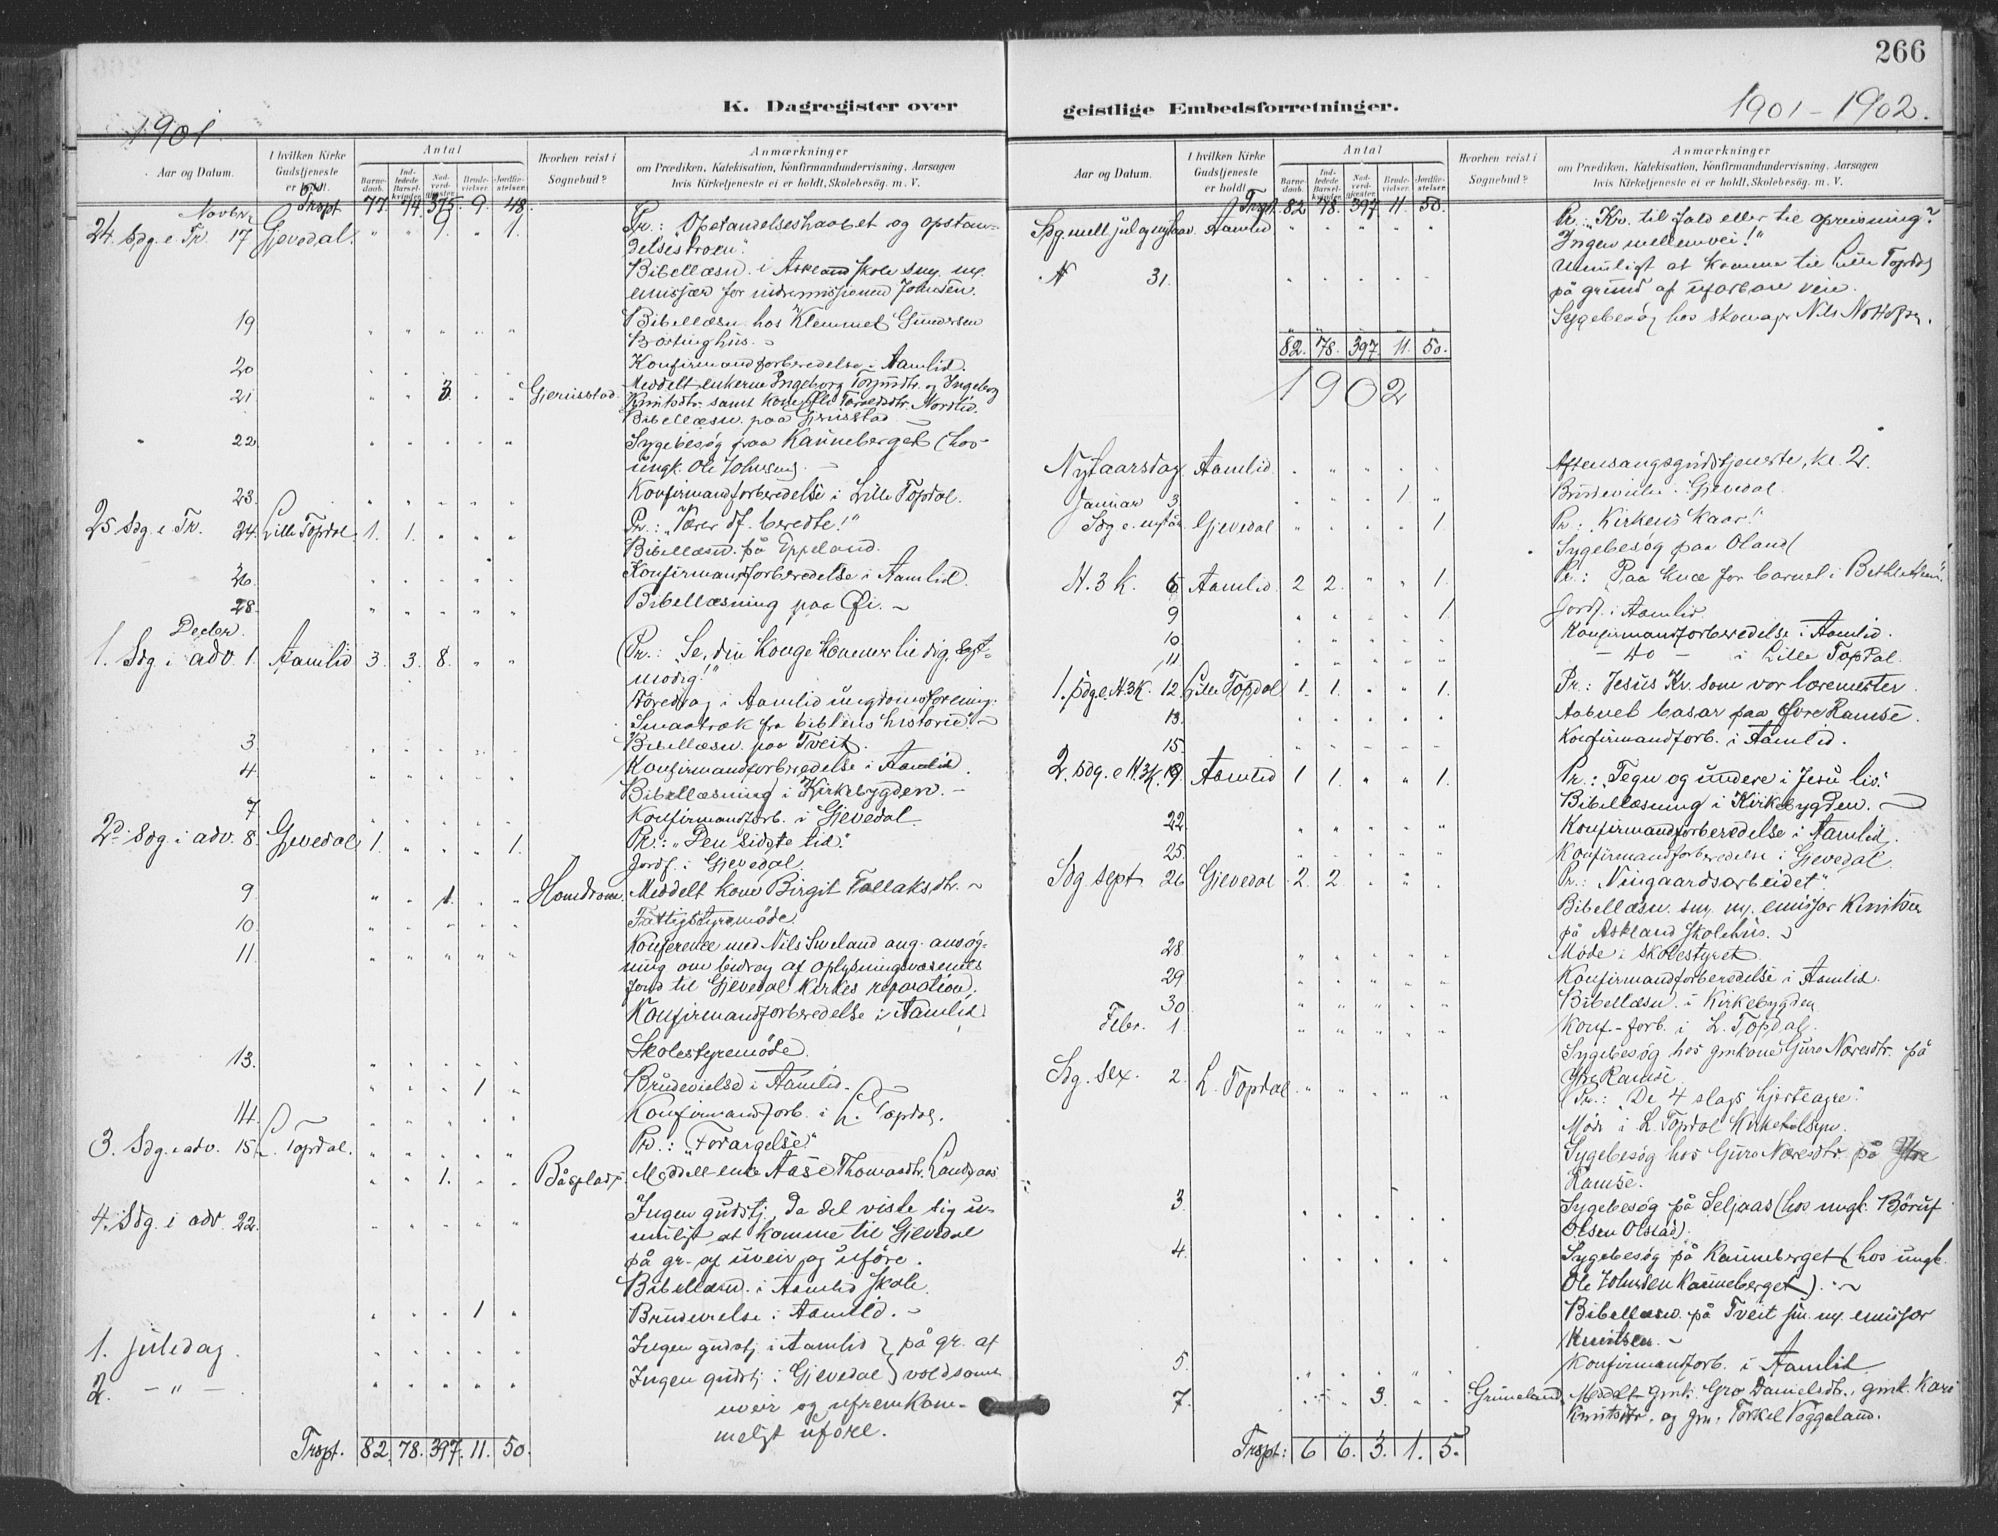 266
K. Dagregister over
geistlige Embedsforretninger.
1901
1901 - 1902.
Aar og Datum.
I hvilken Kirke Gudstjeneste er holdt.
Antal
Barnedaab.
Indledede Barselkvinder.
Nadverdgjester.
Brudevielser.
Jordfæstelser.
Hvorhen reist i Sognebud?
Anmærkninger
om Prædiken, Katekisation, Konfirmandundervisning, Aarsagen
hvis Kirketjeneste ei er holdt, Skolebesøg. m. V.
Trspt 77. 74. 375. 9. 48.
Novbr.
24. Sdg. e. Tr. 17 Gjevedal. Pr.: "Opstandelseshaabet og opstan-
delsestroen".
Bibellæsn. i Askland skole sm. m.
emissær for indremissionen Johnsen.
19 Bibellæsn. hos Klemmet Gundersen
20 Konfirmandforberedelse i Aamlid.
21 3. Meddelt enkerne Ingeborg og Ingeborg
Knutsdtr. samt kone
Bibellæsn. paa
22 Sygebesøg paa Kanneberget (hos
ungk. Ole Johnsen
23. Konfirmandforberedelse i Lille Topdal.
25 Sdg. e. Tr. 24. Lille Topdal 1. 1. Pr.: "Værer beredte!"
Bibellæsn. på Eppeland.
26. Konfirmandforberedelse i Aamlid.
28. Bibellæsning paa Øi.
Decbr.
1. Sdg i adv. 1. Aamlid 3. 3. 8. Pr.: "Se, din konge kommer til dig, sagt-
modig!"
Foredrag i Aamlid ungdomsforening:
Smaatræk fra biblens historie.
3 Bibellæsn. paa Tveit.
4 Konfirmandforberedelse i Aamlid.
Bibellæsning i Kirkebygden.
7 Konfirmandforb. i Gjevedal
2. Sdg. i adv. 8. Gjevedal 1. 1. Pr.: "Den sidste tid."
Jordf. i Gjevedal
9 1. Meddelt kone Birgit Tallaksdtr.
10. Fattigstyremøde.
11. Konference med Nils Sveland ang. ansøg-
ning om bidrag af oplysningsvæsenets
fond til Gjevedal kirkes reparation.
Konfirmandforberedelse i Aamlid.
Skolestyremøde.
13. 1 Brudevielse i Aamlid.
14. Konfirmandforb. i L. Topdal.
3. Sdg. i adv. 15 L. Topdal. Pr.: "Forargelse"
1. Meddelt enke Aase Thomasdtr.
4. Sdg. i adv 22. Ingen gudstj. da det viste sig u-
muligt at komme til Gjevedal
på gr. af uveir og uføre.
Bibellæsn. i Aamlid skole.
1 Brudevielse i Aamlid.
1. juledag. Ingen gudstj. i Aamlid } på gr. af
2. - " - Ingen gudstj. i Gjevedal } voldsomt
uveir og ufremkom-
meligt uføre.
Trspt. 82. 78. 397. 11. 50.
Aar og Datum.
I hvilken Kirke Gudstjeneste er holdt
Antal
Barnedaab.
Indledede Barselkvinder.
Nadverdgjester.
Brudevielser.
Jordfæstelser.
Hvorhen reist i Sognebud?
Anmærkninger
om Prædiken, Katekisation, Konfirmandundervisning, Aarsagen
hvis Kirketjeneste ei er holdt, Skolebesøg. m. V.
Trspt. 82 78. 397. 11. 50.
Sdg. mell. jul og nytaar. Aamlid Pr.: "Kr. til fald eller til opreisning?
Ingen mellemvei!"
31. Umuligt at komme til Lille Topdal
på grund af ufarbare veie.
Sygebesøg hos skomager Nils
82. 78. 397. 11. 50.
1902
Nytaarsdag. Aamlid. Aftensangsgudstjeneste, kl. 2.
Januar 3. 1. Brudevielse i Gjevedal.
Sdg. e. nytår Gjevedal 1. Pr: "Kirkens kaar!"
Sygebesøg paa Oland
H. 3 K. 6 Aamlid 2 2. 1. Pr.: "Paa knæ for barnet i Bethlehem".
9 1. Jordf. i Aamlid.
10 Konfirmandforberedelse i Aamlid.
11. - do - i Lille Topdal.
1. Sdg. e. H3K. 12. Lille Topdal 1. 1. 1. Pr.: Jesus Kr. som vor læremester
13. Aabnet basar paa Øvre Ramse.
15. Konfirmandforb. i Aamlid.
2. Sdg. e. H3K. 19. Aamlid 1 1. 1. Pr.: "Tegn og undere i Jesu liv."
Bibellæsning i Kirkebygden.
22 Konfirmandforberedelse i Aamlid.
25. Konfirmandforberedelse i Gjevedal
Sdg. sept. 26 Gjevedal 2. 2. Pr.: "Vingaardsarbeidet".
Bibellæsn. sm. m. emissær Knutsen
på Askland skolehus.
28 Møde i skolestyret.
29 Konfirmandforberedelse i Aamlid.
30 Bibellæsn. i Kirkebygden
Febr. 1. Konf-forb. i L. Topdal.
Sygebesøg hos gmkone Guro Næresdtr. på
Ytre Ramse.
Sdg. sex. 2. L. Topdal Pr.: "De 4 slags hjerteagre."
Møde i L. Topdal kirketilsyn.
Sygebesøg hos Guro Næresdtr. på Ytre
Ramse.
3. Sygebesøg på Seljaas (hos ungk.
Olsen Olstad).
4. Sygebesøg på Kanneberget (hos ungk.
Ole Johnsen Kanneberget).
Bibellæsn. på Tveit sm. m. emissær
Knutsen.
5. Konfirmandforb. i Aamlid
7. 3. Meddelt gmk. Gro Danielsdtr., gmk. Kari
Knutsdtr. og gm. Torkel Veggeland.
Trspt: 6 6. 3. 1. 5.